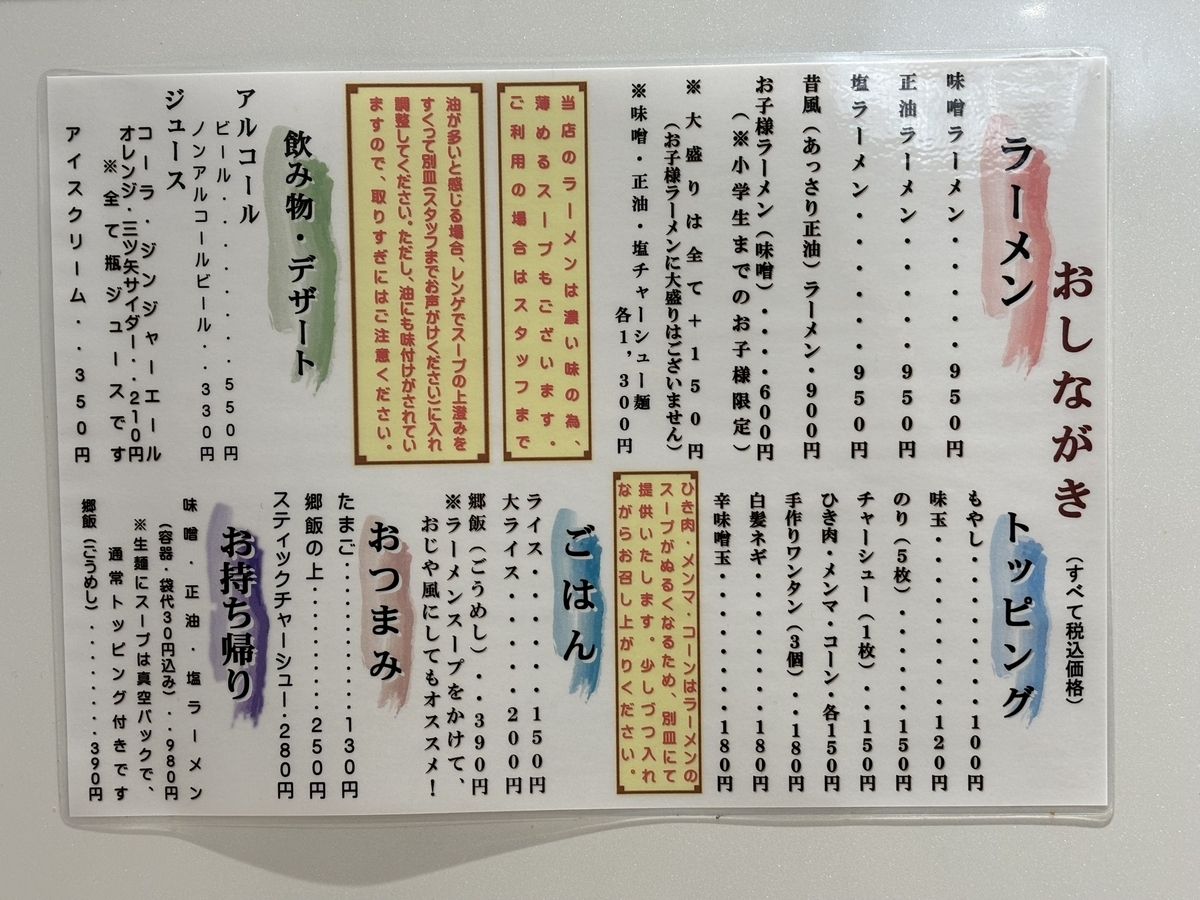 おしながき
(すべて税込価格)
ラーメン
味噌ラーメン・・・・950円
正油ラーメン・・・・950円
塩ラーメン・・・・・950円
昔風(あっさり正油)ラーメン・900円
お子様ラーメン(味噌)・・・・600円
(※小学生までのお子様限定)
※大盛りは全て+150円
(お子様ラーメンに大盛りはございません)
※味噌・正油・塩チャーシュー麺
各1,300円
当店のラーメンは濃い味の為、
薄めるスープもございます。
ご利用の場合はスタッフまで
油が多いと感じる場合、レンゲでスープの上澄みを
すくって別皿(スタッフまでお声がけください)に入れ
調整してください。ただし、油にも味付けがされてい
ますので、取りすぎにはご注意ください。
飲み物・デザート
アルコール
ビール・・・・・・・・550円
ノンアルコールビール・・330円
ジュース
コーラ・ジンジャーエール
オレンジ・三ツ矢サイダー・・210円
※全て瓶ジュースです
アイスクリーム・・350円
トッピング
もやし・・・・・・・100円
味玉・・・・・・・・120円
のり(5枚)・・・・・150円
チャーシュー(1枚)・・150円
ひき肉・メンマ・コーン・各150円
手作りワンタン(3個)・・180円
白髪ネギ・・・・・・180円
辛味噌玉・・・・・・180円
ひき肉・メンマ・コーンはラーメンの
スープがぬるくなるため、別皿にて
提供いたします。少しづつ入れ
ながらお召し上がりください。
ごはん
ライス・・・・・150円
大ライス・・・・200円
郷飯(ごうめし)・・390円
※ラーメンスープをかけて、
おじや風にしてもオススメ!
おつまみ
たまご・・・・・・・・130円
郷飯の上・・・・・・・250円
スティックチャーシュー・280円
お持ち帰り
味噌・正油・塩ラーメン
(容器・袋代30円込み)・・980円
※生麺にスープは真空パックで、
通常トッピング付きです
郷飯(ごうめし)・・・・・・・390円